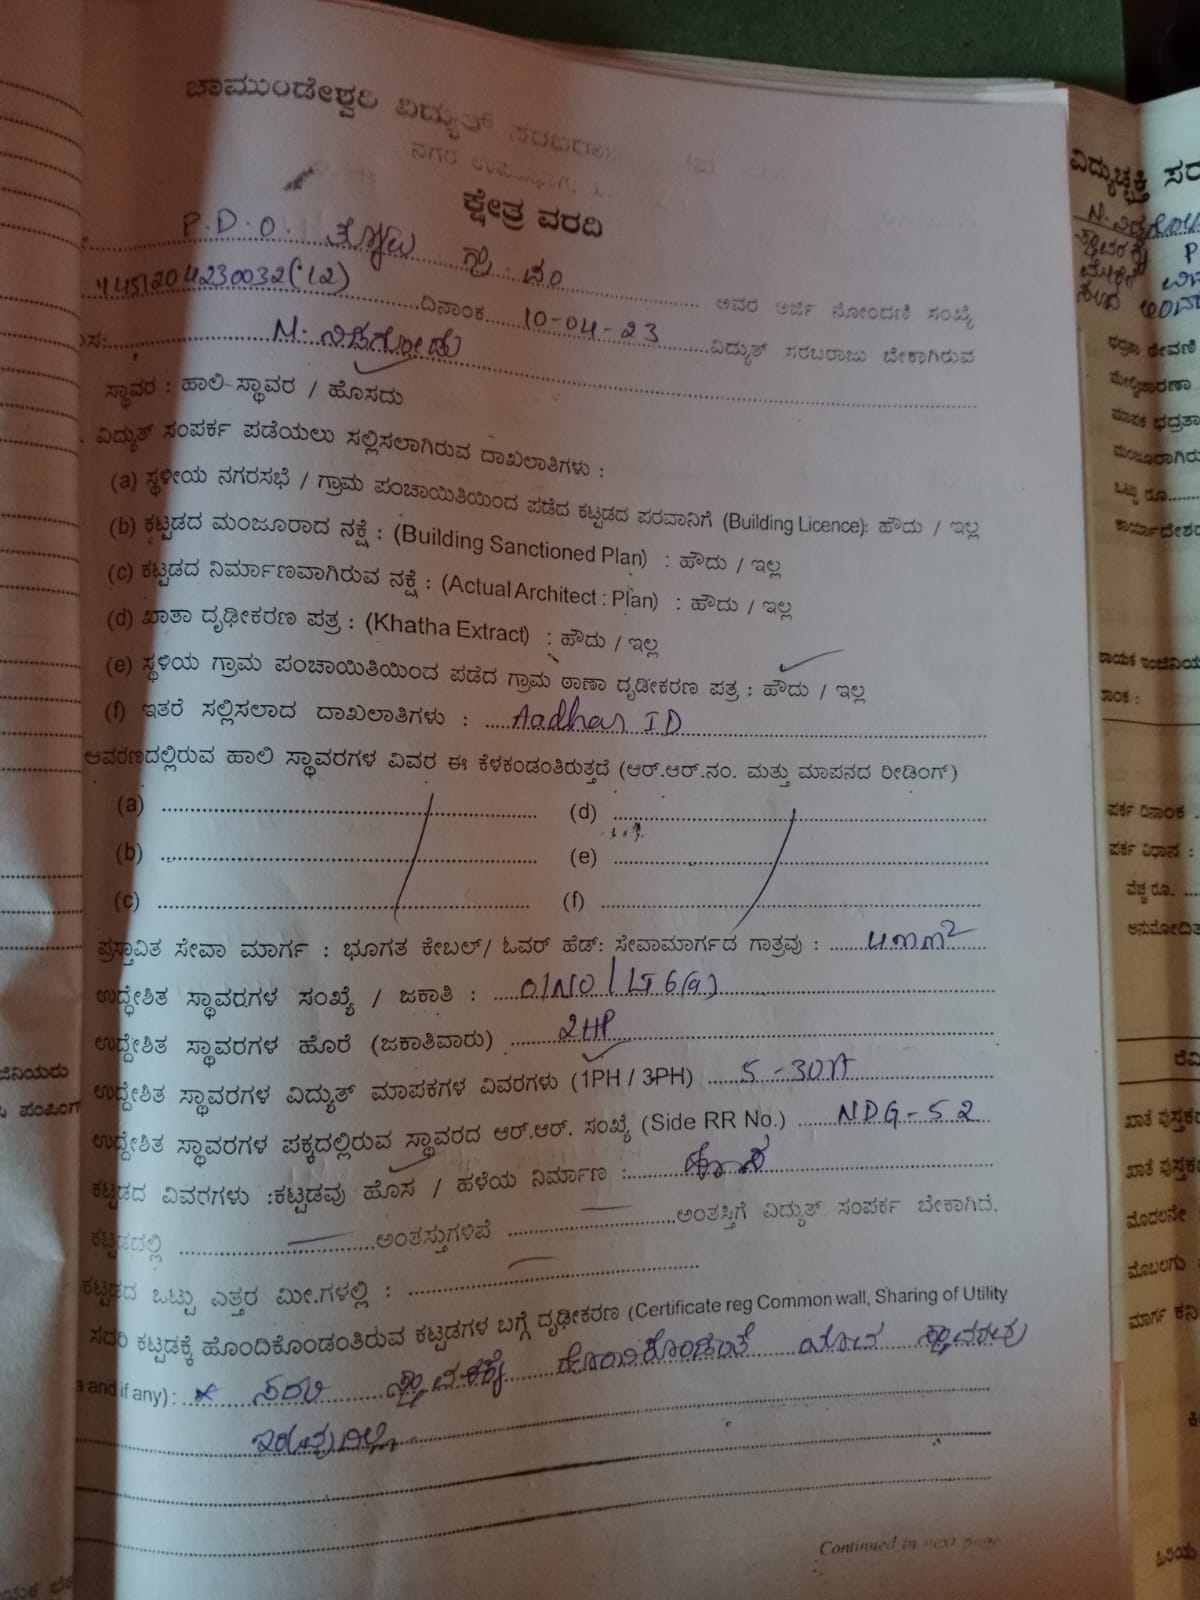 ಚಾಮುಂಡೇಶ್ವರಿ ವಿದ್ಯುತ್ ಸರಬರಾಜು
ನಗರ ಉಪವಿಭಾಗ,
ಕ್ಷೇತ್ರ ವರದಿ
P.D.O. ಗ್ರಾ. ಪಂ
ಅವರ ಅರ್ಜಿ ನೋಂದಣಿ ಸಂಖ್ಯೆ
ದಿನಾಂಕ 10-04-23 ವಿದ್ಯುತ್ ಸರಬರಾಜು ಬೇಕಾಗಿರುವ
N. ನಿಡಗೋಡು
ಸ್ಥಾವರ : ಹಾಲಿ ಸ್ಥಾವರ / ಹೊಸದು
ವಿದ್ಯುತ್ ಸಂಪರ್ಕ ಪಡೆಯಲು ಸಲ್ಲಿಸಲಾಗಿರುವ ದಾಖಲಾತಿಗಳು :
(a) ಸ್ಥಳೀಯ ನಗರಸಭೆ / ಗ್ರಾಮ ಪಂಚಾಯಿತಿಯಿಂದ ಪಡೆದ ಕಟ್ಟಡದ ಪರವಾನಿಗೆ (Building Licence): ಹೌದು / ಇಲ್ಲ
(b) ಕಟ್ಟಡದ ಮಂಜೂರಾದ ನಕ್ಷೆ : (Building Sanctioned Plan) : ಹೌದು / ಇಲ್ಲ
(c) ಕಟ್ಟಡದ ನಿರ್ಮಾಣವಾಗಿರುವ ನಕ್ಷೆ : (Actual Architect : Plan) : ಹೌದು / ಇಲ್ಲ
(d) ಖಾತಾ ದೃಢೀಕರಣ ಪತ್ರ : (Khatha Extract) : ಹೌದು / ಇಲ್ಲ
(e) ಸ್ಥಳಿಯ ಗ್ರಾಮ ಪಂಚಾಯಿತಿಯಿಂದ ಪಡೆದ ಗ್ರಾಮ ಠಾಣಾ ದೃಢೀಕರಣ ಪತ್ರ : ಹೌದು / ಇಲ್ಲ
(f) ಇತರೆ ಸಲ್ಲಿಸಲಾದ ದಾಖಲಾತಿಗಳು : Aadhar ID
ಆವರಣದಲ್ಲಿರುವ ಹಾಲಿ ಸ್ಥಾವರಗಳ ವಿವರ ಈ ಕೆಳಕಂಡಂತಿರುತ್ತದೆ (ಆರ್.ಆರ್.ನಂ. ಮತ್ತು ಮಾಪನದ ರೀಡಿಂಗ್)
(a) (d)
(b) (e)
(c) (f)
ಪ್ರಸ್ತಾವಿತ ಸೇವಾ ಮಾರ್ಗ : ಭೂಗತ ಕೇಬಲ್/ ಓವರ್ ಹೆಡ್: ಸೇವಾಮಾರ್ಗದ ಗಾತ್ರವು : 4mm²
ಉದ್ದೇಶಿತ ಸ್ಥಾವರಗಳ ಸಂಖ್ಯೆ / ಜಕಾತಿ : 01NO / LT 6(a)
ಉದ್ದೇಶಿತ ಸ್ಥಾವರಗಳ ಹೊರೆ (ಜಕಾತಿವಾರು) 2HP
ಉದ್ದೇಶಿತ ಸ್ಥಾವರಗಳ ವಿದ್ಯುತ್ ಮಾಪಕಗಳ ವಿವರಗಳು (1PH / 3PH) 5-30A
ಉದ್ದೇಶಿತ ಸ್ಥಾವರಗಳ ಪಕ್ಕದಲ್ಲಿರುವ ಸ್ಥಾವರದ ಆರ್.ಆರ್. ಸಂಖ್ಯೆ (Side RR No.) NDG-52
ಕಟ್ಟಡದ ವಿವರಗಳು :ಕಟ್ಟಡವು ಹೊಸ / ಹಳೆಯ ನಿರ್ಮಾಣ : ಹೊಸ
ಕಟ್ಟಡದಲ್ಲಿ ಅಂತಸ್ತುಗಳಿವೆ ಅಂತಸ್ತಿಗೆ ವಿದ್ಯುತ್ ಸಂಪರ್ಕ ಬೇಕಾಗಿದೆ.
ಕಟ್ಟಡದ ಒಟ್ಟು ಎತ್ತರ ಮೀ.ಗಳಲ್ಲಿ :
ಸದರಿ ಕಟ್ಟಡಕ್ಕೆ ಹೊಂದಿಕೊಂಡಂತಿರುವ ಕಟ್ಟಡಗಳ ಬಗ್ಗೆ ದೃಢೀಕರಣ (Certificate reg Common wall, Sharing of Utility
and if any): ಸದರಿ ಸ್ಥಾವರಕ್ಕೆ ಹೊಂದಿಕೊಂಡಂತೆ ಯಾವ ಸ್ಥಾವರವು
ಇರುವುದಿಲ್ಲ
Continued in next page
ವಿದ್ಯುಚ್ಛಕ್ತಿ ಸರ
ಮಾಪಕ ಭದ್ರತಾ
ಒಟ್ಟು ರೂ
ಕಾರ್ಯಾದೇಶ
ವೆಚ್ಚ ರೂ.
ಖಾತೆ ಪುಸ್ತಕ
ಖಾತೆ ಪುಸ್ತಕ
ಮೊದಲನೇ
ಮೊಬಲಗು
ಹಿರಿಯ